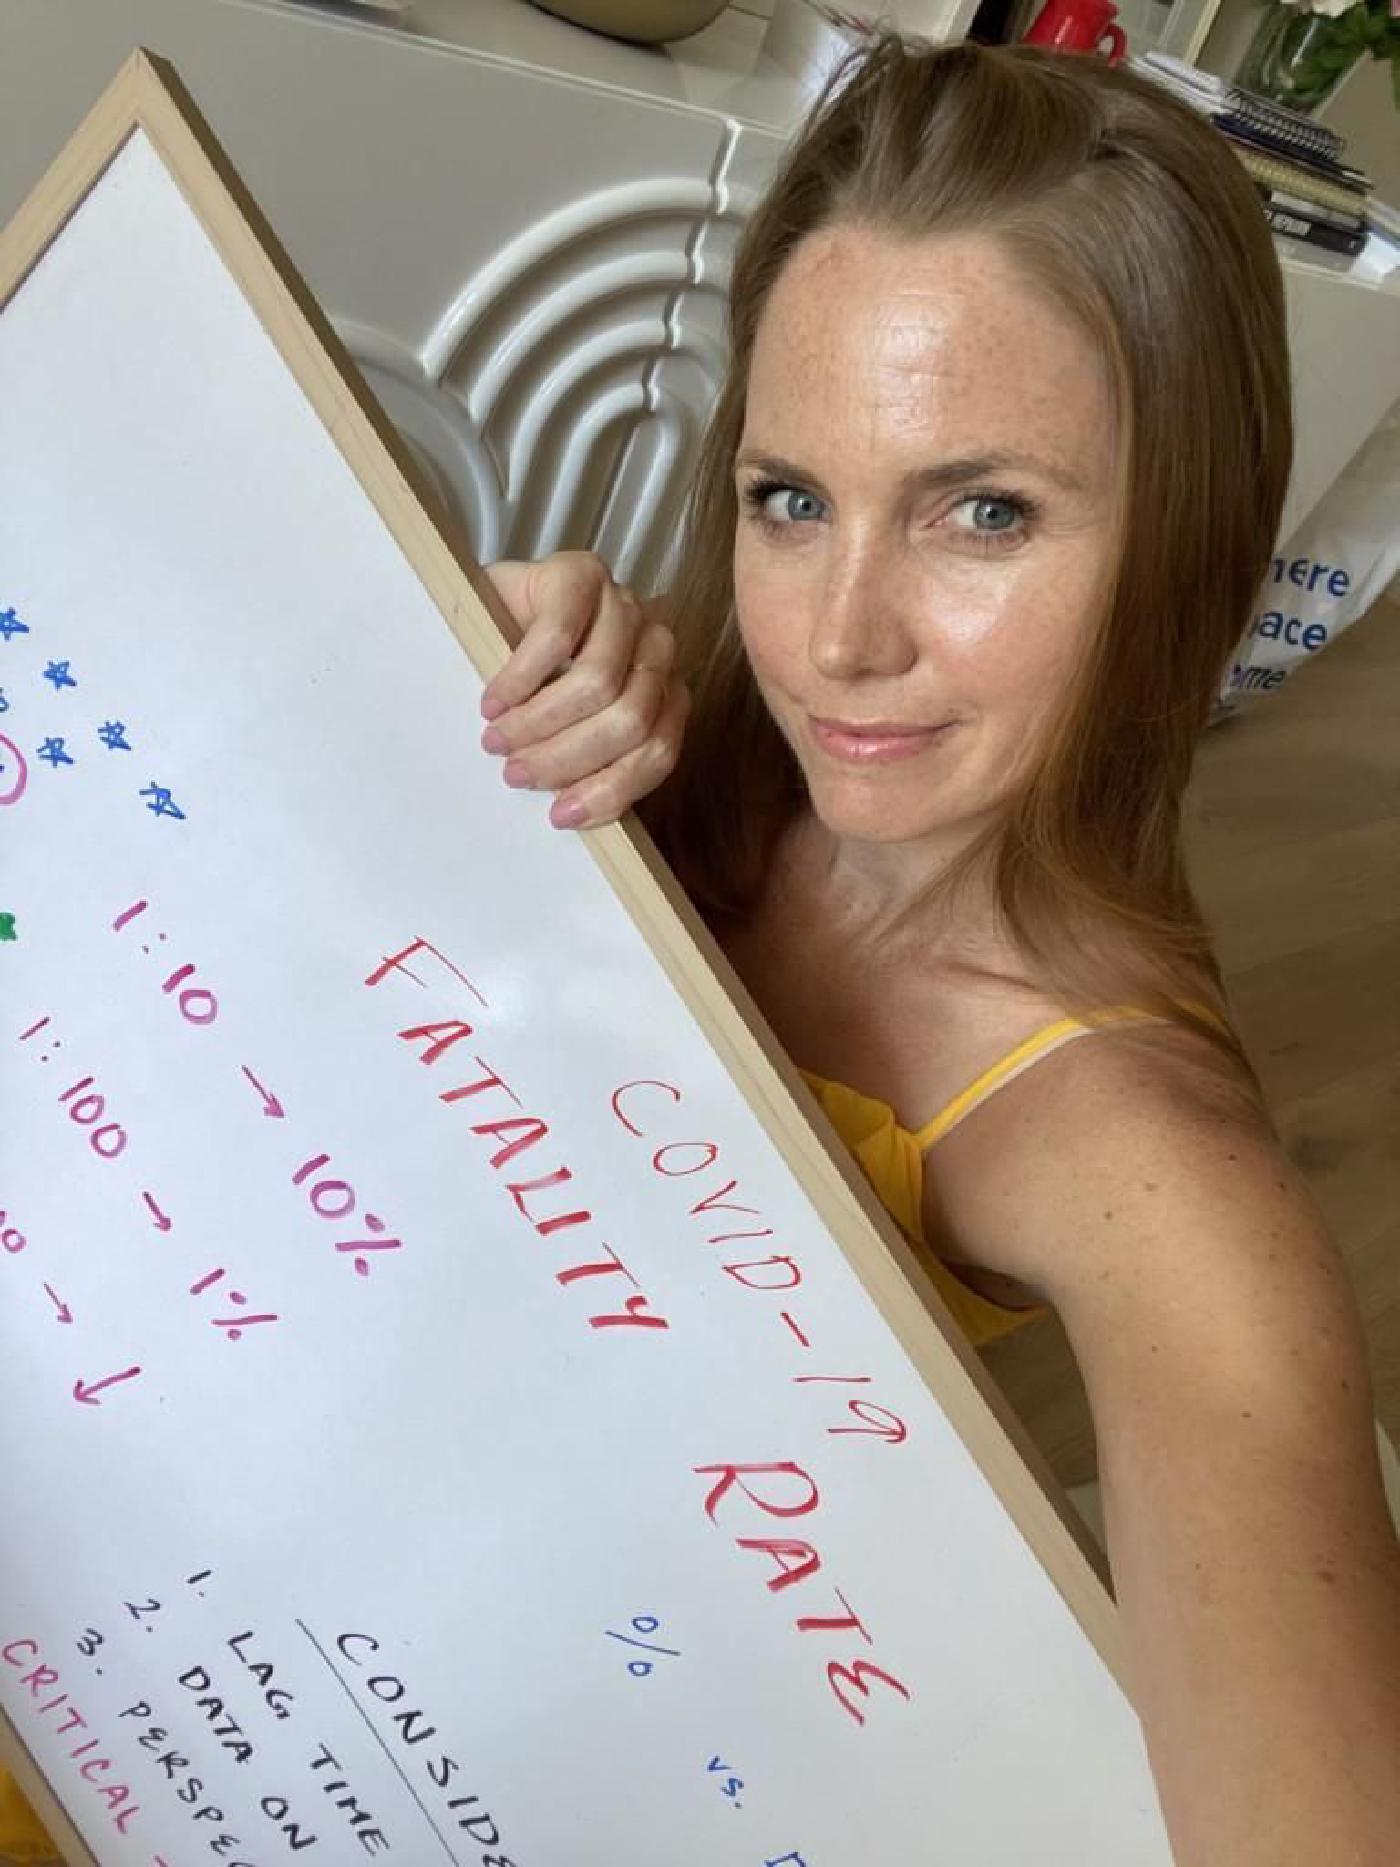 COVID-19
FATALITY RATE
% vs.
1:10 → 10%
1:100 → 1%
→ ↓
CONSIDE
1. LAG TIME
2. DATA ON
3. PERSPEC
CRITICAL
here
ace
ome